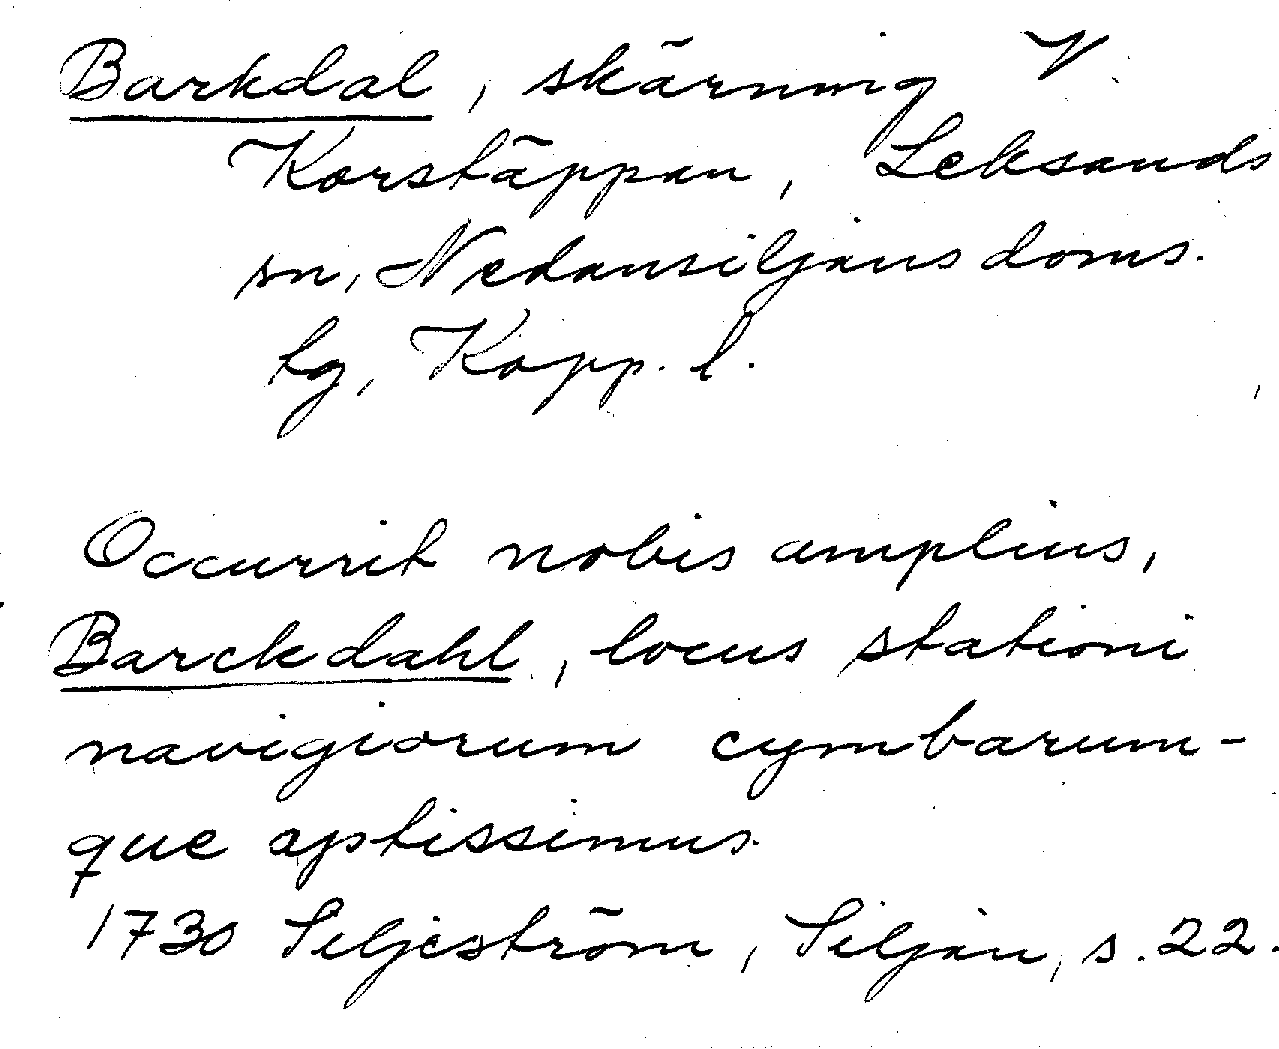 Barkdal, skärning V.
Korstäppan, Leksands
sn, Nedansiljans doms.
hg, Kopp. l.
Occurrit nobis amplius,
Barckdahl, locus stationi
navigiorum cymbarum-
que aptissimus.
1730 Siljeström, Siljan, s. 22.